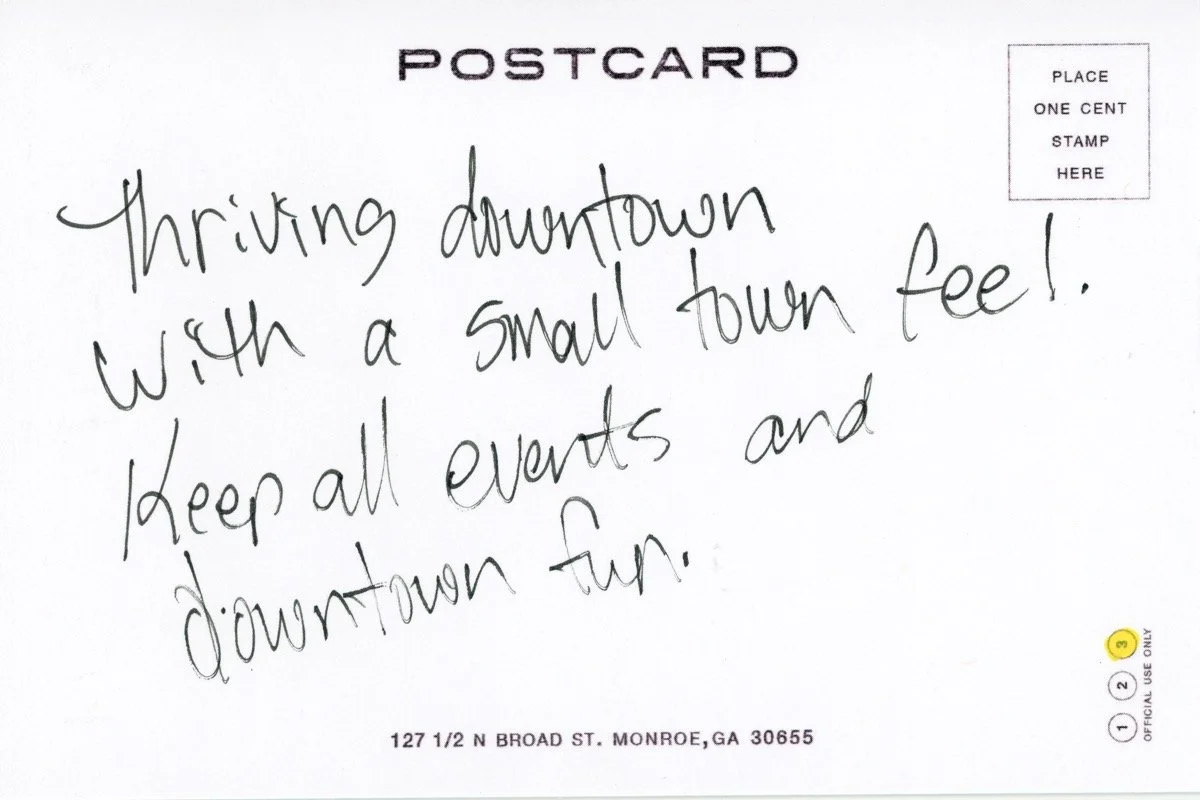 POSTCARD
PLACE
ONE CENT
STAMP
HERE
Thriving downtown
with a small town feel.
Keep all events and
downtown fun.
1 2 3
OFFICIAL USE ONLY
127 1/2 N BROAD ST. MONROE,GA 30655